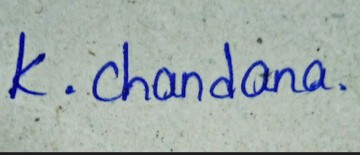 K. chandana.